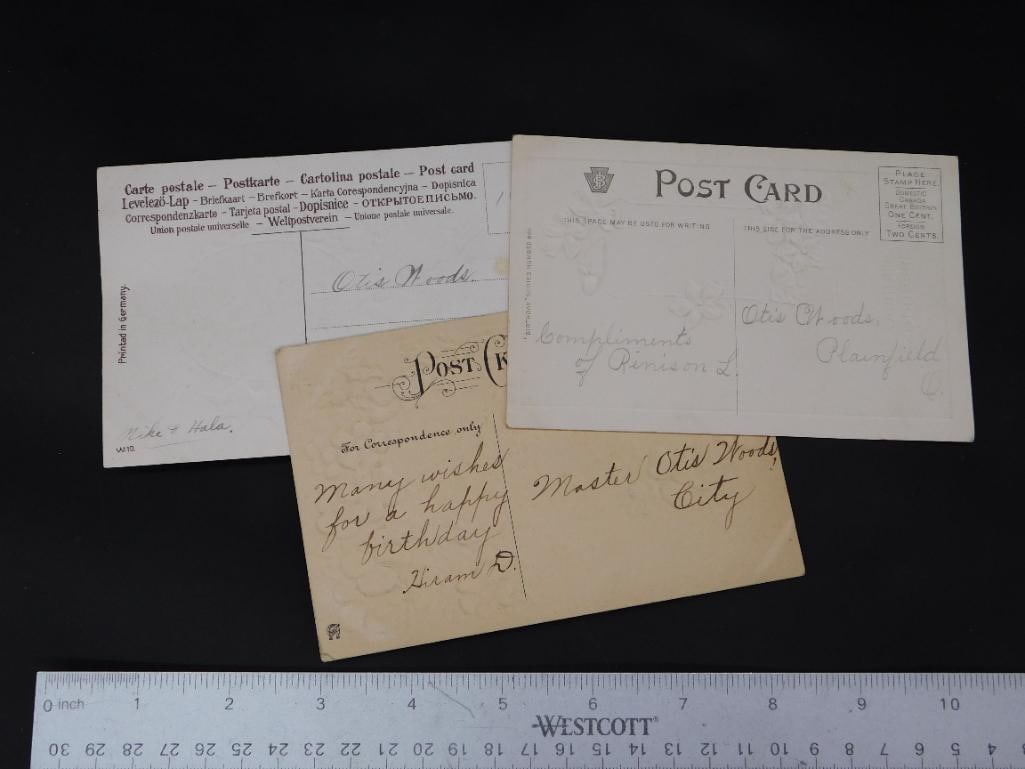 Carte postale – Postkarte – Cartolina postale – Post card
Levelező-Lap – Briefkaart – Brefkort – Karta Corespondencyjna – Dopisnica
Correspondenzkarte – Tarjeta postal – Dopisnice – ОТКРЫТОЕ ПИСЬМО.
Union postale universelle – Weltpostverein – Unione postale universale.
Otis Woods.
Printed in Germany.
Mike & Hala.
W.10.
POST CARD
THIS SPACE MAY BE USED FOR WRITING
THIS SIDE FOR THE ADDRESS ONLY
PLACE
STAMP HERE.
DOMESTIC
CANADA
GREAT BRITAIN
ONE CENT.
FOREIGN
TWO CENTS.
"BIRTHDAY" SERIES NUMBER
Compliments
of Rinison L.
Otis Woods,
Plainfield
O.
POST
For Correspondence only
Many wishes
for a happy
birthday
Hiram D.
Master Otis Woods,
City
0 inch 1 2 3 4 5 6 7 8 9 10
WESTCOTT®
30 29 28 27 26 25 24 23 22 21 20 19 18 17 16 15 14 13 12 11 10 9 8 7 6 5 4